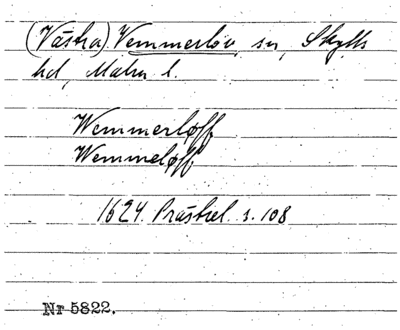 (Västra) Vemmerlöv sn, Skytts
hd, Malm. l.
Wemmerløff
Wemmeløff
1624 Prästrel. s. 108
Nr 5822.